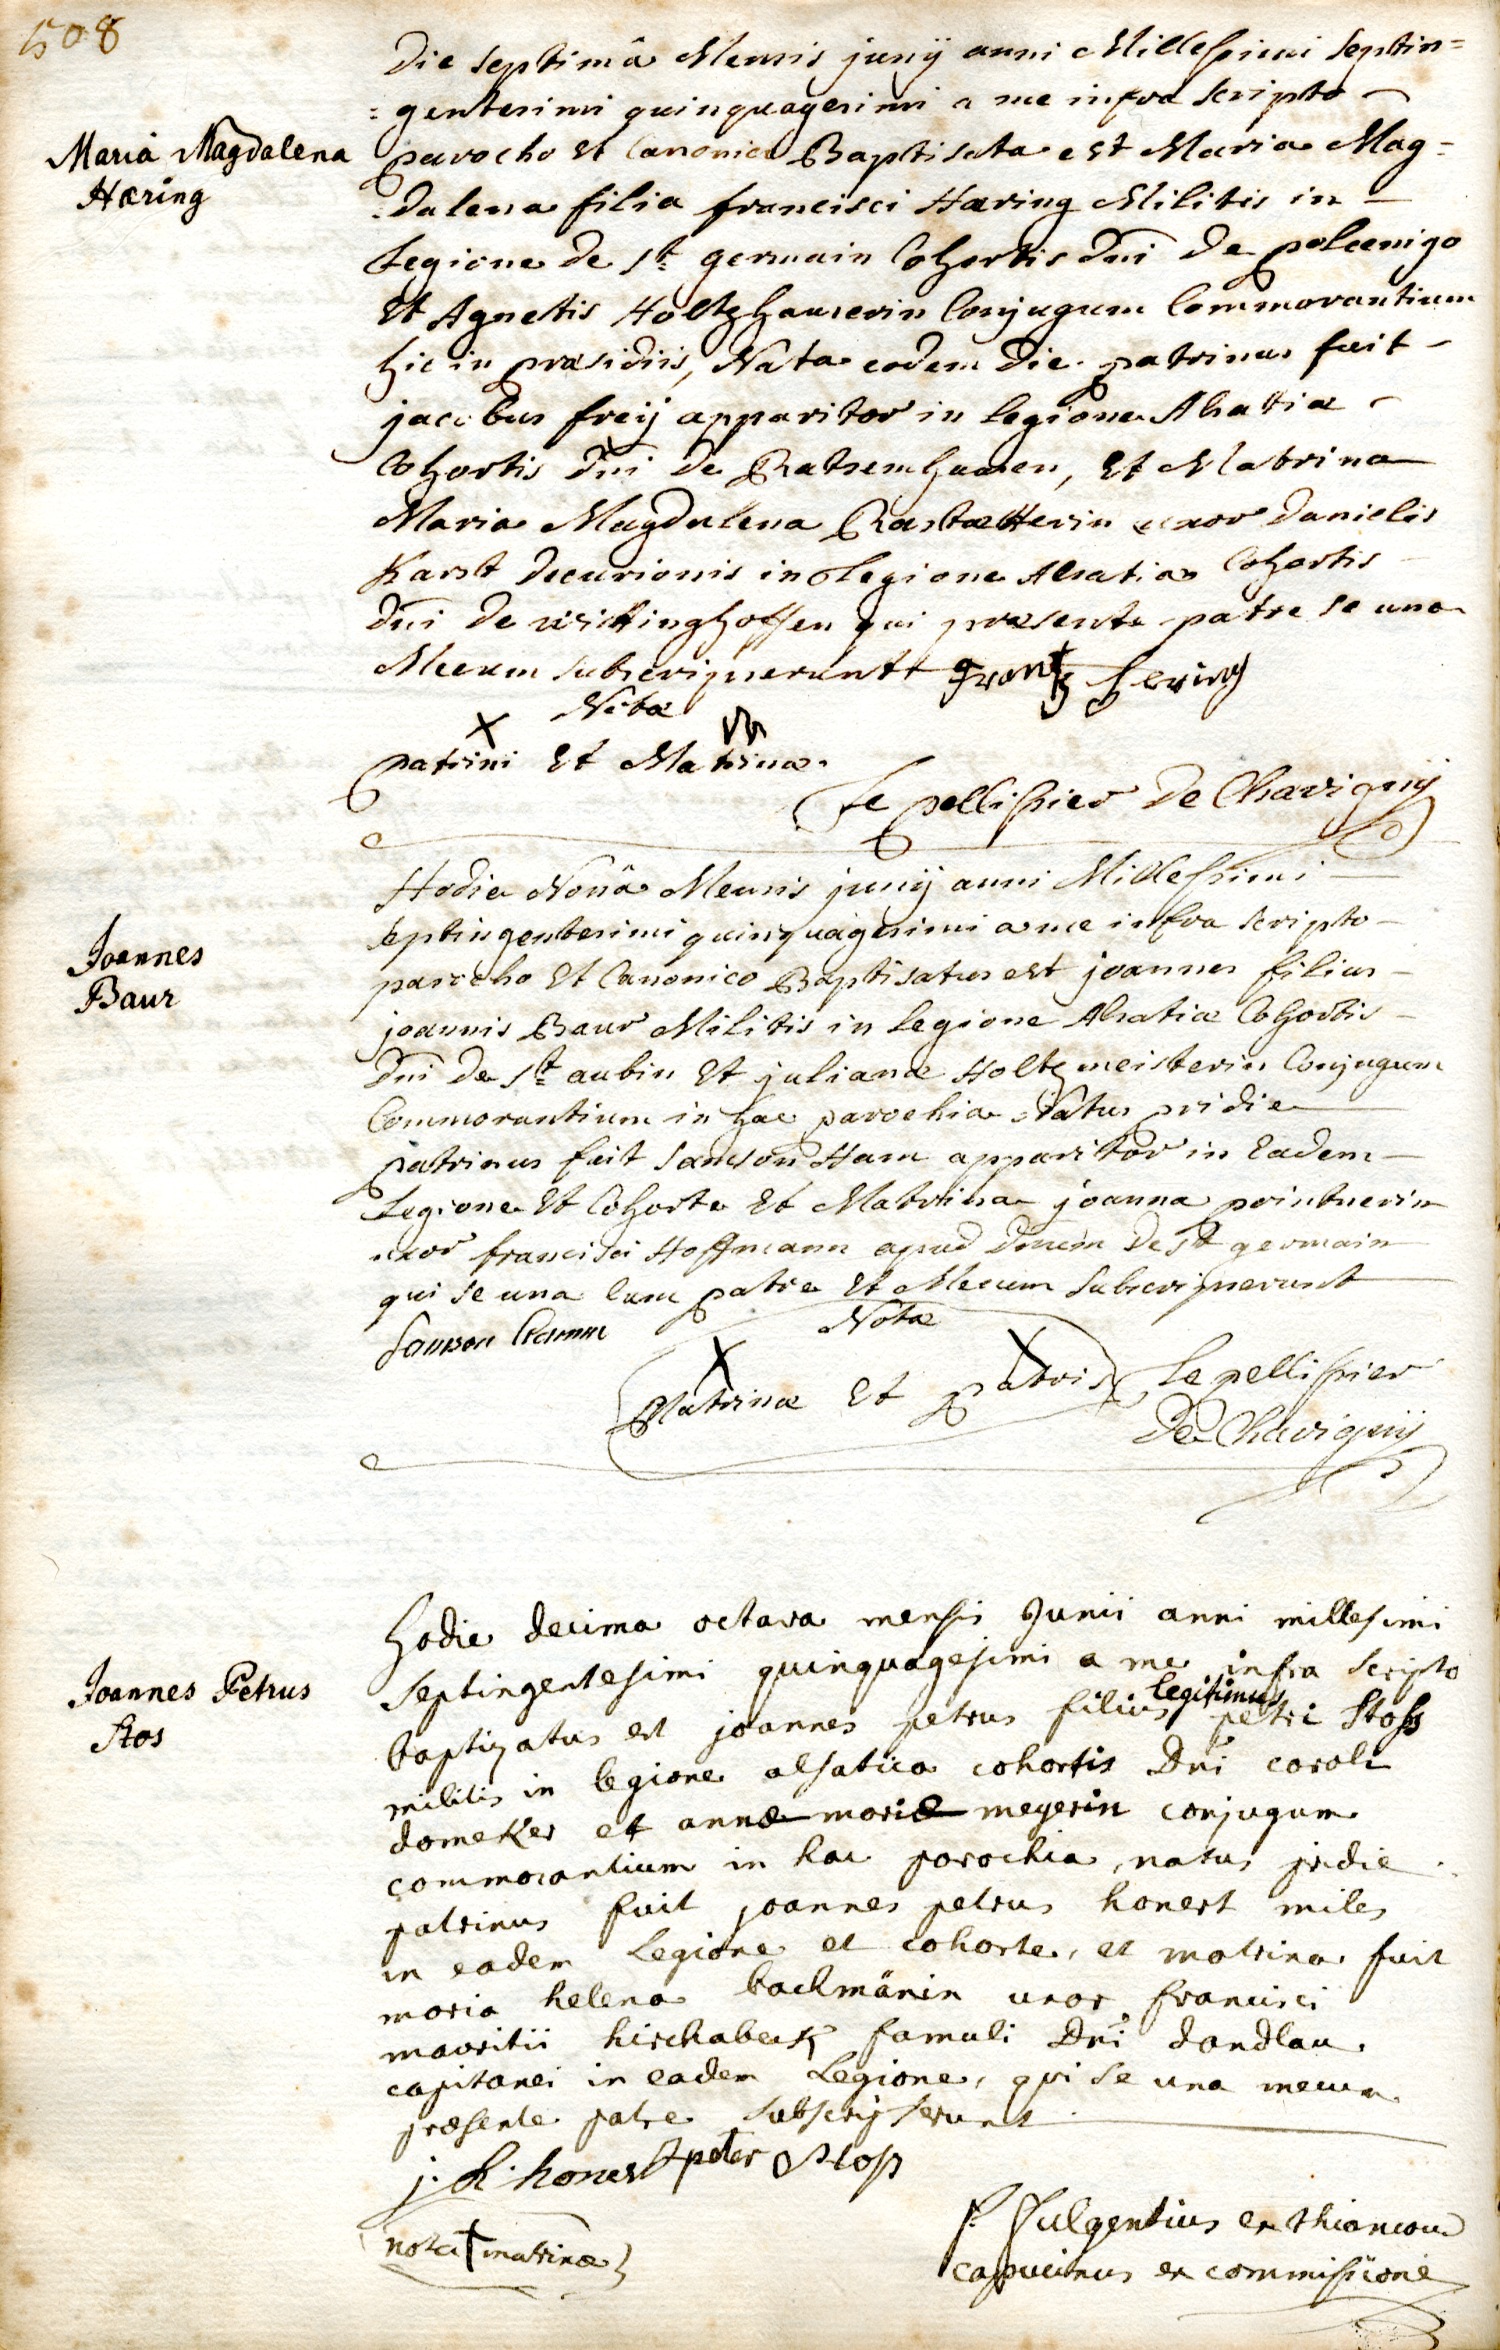 508
Die septimâ Mensis junÿ anni Millesimi septin=
=gentesimi quinquagesimi a me infra scripto
Maria Magdalena
Hæring
parocho et Canonico Baptisata est Maria Mag=
=dalena filia francisci Hæring Militis in
Legione de St germain Cohortis Dni De polcenigo
Et Agnetis Holtzhauserin Conjugum Commorantium
hic in præsidiis, Nata eodem Die. patrinus fuit
jacobus freÿ apparitor in legione Alsatiæ
Cohortis Dni de Ratsemhausen, Et Matrina
Maria Magdalena Rastætterin uxor Danielis
Karst Decurionis in Legione Alsatiæ Cohortis
Dni De vittinghoffen qui præsente patre se una
Mecum subscripserunt frantz hering
Notæ
patrini Et Matrinæ.
Le pellissier De Chavignÿ
Hodie Nonâ Mensis junÿ anni Millesimi
septingentesimi quinquagesimi a me infra scripto
Joannes
Baur
parocho Et Canonico Baptisatus est joannes filius
joannis Baur Militis in legione Alsatiæ Cohortis
Dni De St aubin Et julianæ Holtzmeisterin Conjugum
Commorantium in hac parochia Natus pridie
patrinus fuit samson Ham apparitor in Eadem
Legione Et Cohorte Et Matrina joanna printnerin
uxor francisci Hoffmann apud Dnum De St germain
qui se una Cum patre Et Mecum subscripserunt
Notæ
Matrinæ Et patris
Le pellissier
De Chavignÿ
Hodie decima octava mensis Junii anni millesimi
septingentesimi quinquagesimi a me infra scripto
Joannes Petrus
Stos
baptizatus est joannes petrus filius legitimus petri Stoss
militis in legione alsatica cohortis Dni caroli
domeker et annæ mariæ meyerin conjugum
commorantium in hac parochia, natus pridie
patrinus fuit joannes petrus honert miles
in eadem Legione et cohorte, et matrina fuit
maria helena bachmänin uxor francisci
mauritii hirchabeck famuli Dni dandlau
capitanei in eadem Legione, qui se una mecum
præsente patre subscripserunt
j. P. honert peter stoss
nota matrinæ
f. fulgentius ex thiancour
capucinus ex commissione